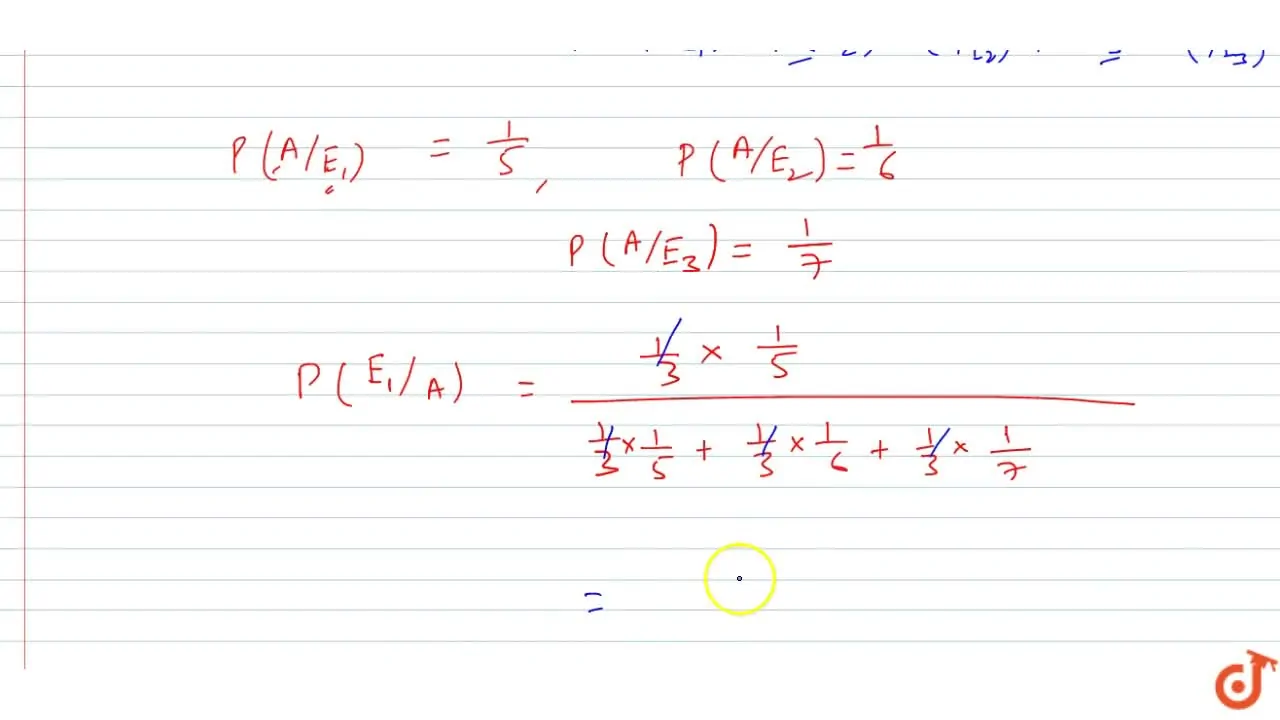 P(A/E₁) = 1/5, P(A/E₂) = 1/6
P(A/E₃) = 1/7
P(E₁/A) = (1/3 × 1/5) / (1/3 × 1/5 + 1/3 × 1/6 + 1/3 × 1/7)
=